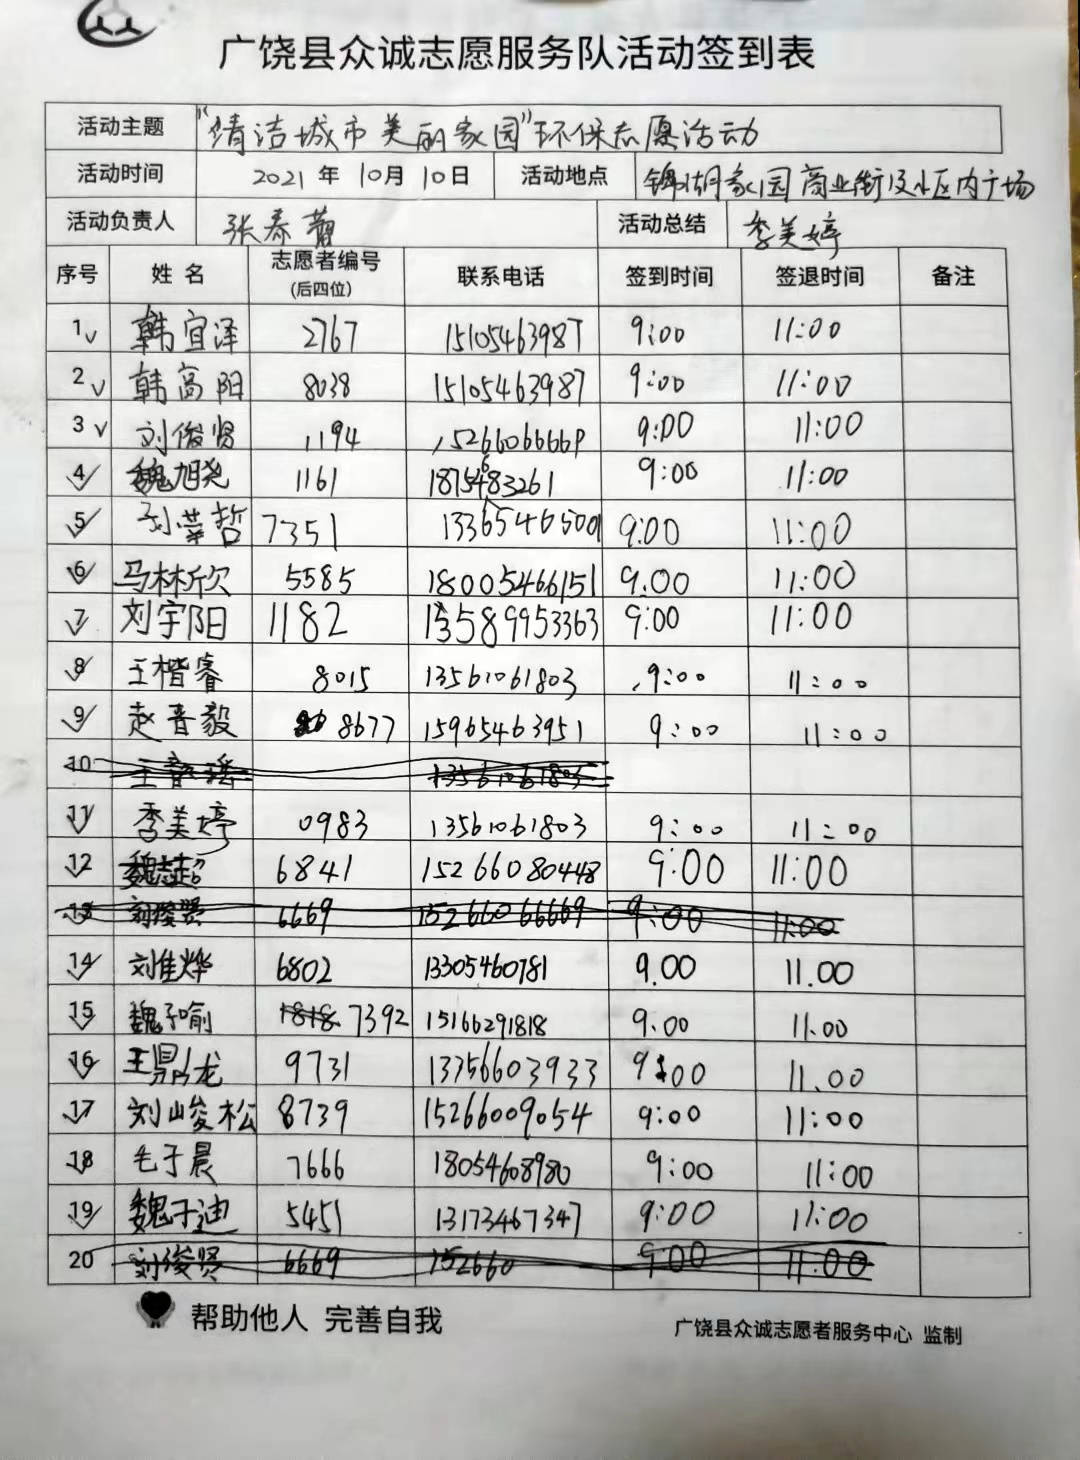 广饶县众诚志愿服务队活动签到表
活动主题 "清洁城市 美丽家园"环保志愿活动
活动时间 2021 年 10月 10日 活动地点 锦湖家园商业街及小区内广场
活动负责人 张春 活动总结 李美婷
序号 姓 名 志愿者编号 (后四位) 联系电话 签到时间 签退时间 备注
1 韩宜泽 2767 15105463987 9:00 11:00
2 韩高阳 8038 15105463987 9:00 11:00
3 刘俊贤 1194 15266066669 9:00 11:00
4 魏旭尧 1161 9:00 11:00
5 荣哲 7351 13365465001 9:00 11:00
6 马林欣 5585 18005466151 9:00 11:00
7 刘宇阳 1182 13589953363 9:00 11:00
8 王楷睿 8015 13561061803 9:00 11:00
9 赵晋毅 8677 15965463951 9:00 11:00
10 王 瑶 13561061803
11 李美婷 0983 13561061803 9:00 11:00
12 魏志超 6841 15266080448 9:00 11:00
13 刘俊贤 6669 15266066669 9:00 11:00
14 刘佳烨 6802 13305460781 9.00 11.00
15 魏子喻 1818 7392 15166291818 9:00 11:00
16 王龙 9731 13356603933 9:00 11.00
17 刘峻松 8739 15266009054 9:00 11:00
18 毛于晨 7666 18054608980 9:00 11:00
19 魏子迪 5451 13173467347 9:00 11:00
20 刘俊贤 6669 152660 9:00 11:00
帮助他人 完善自我
广饶县众诚志愿者服务中心 监制